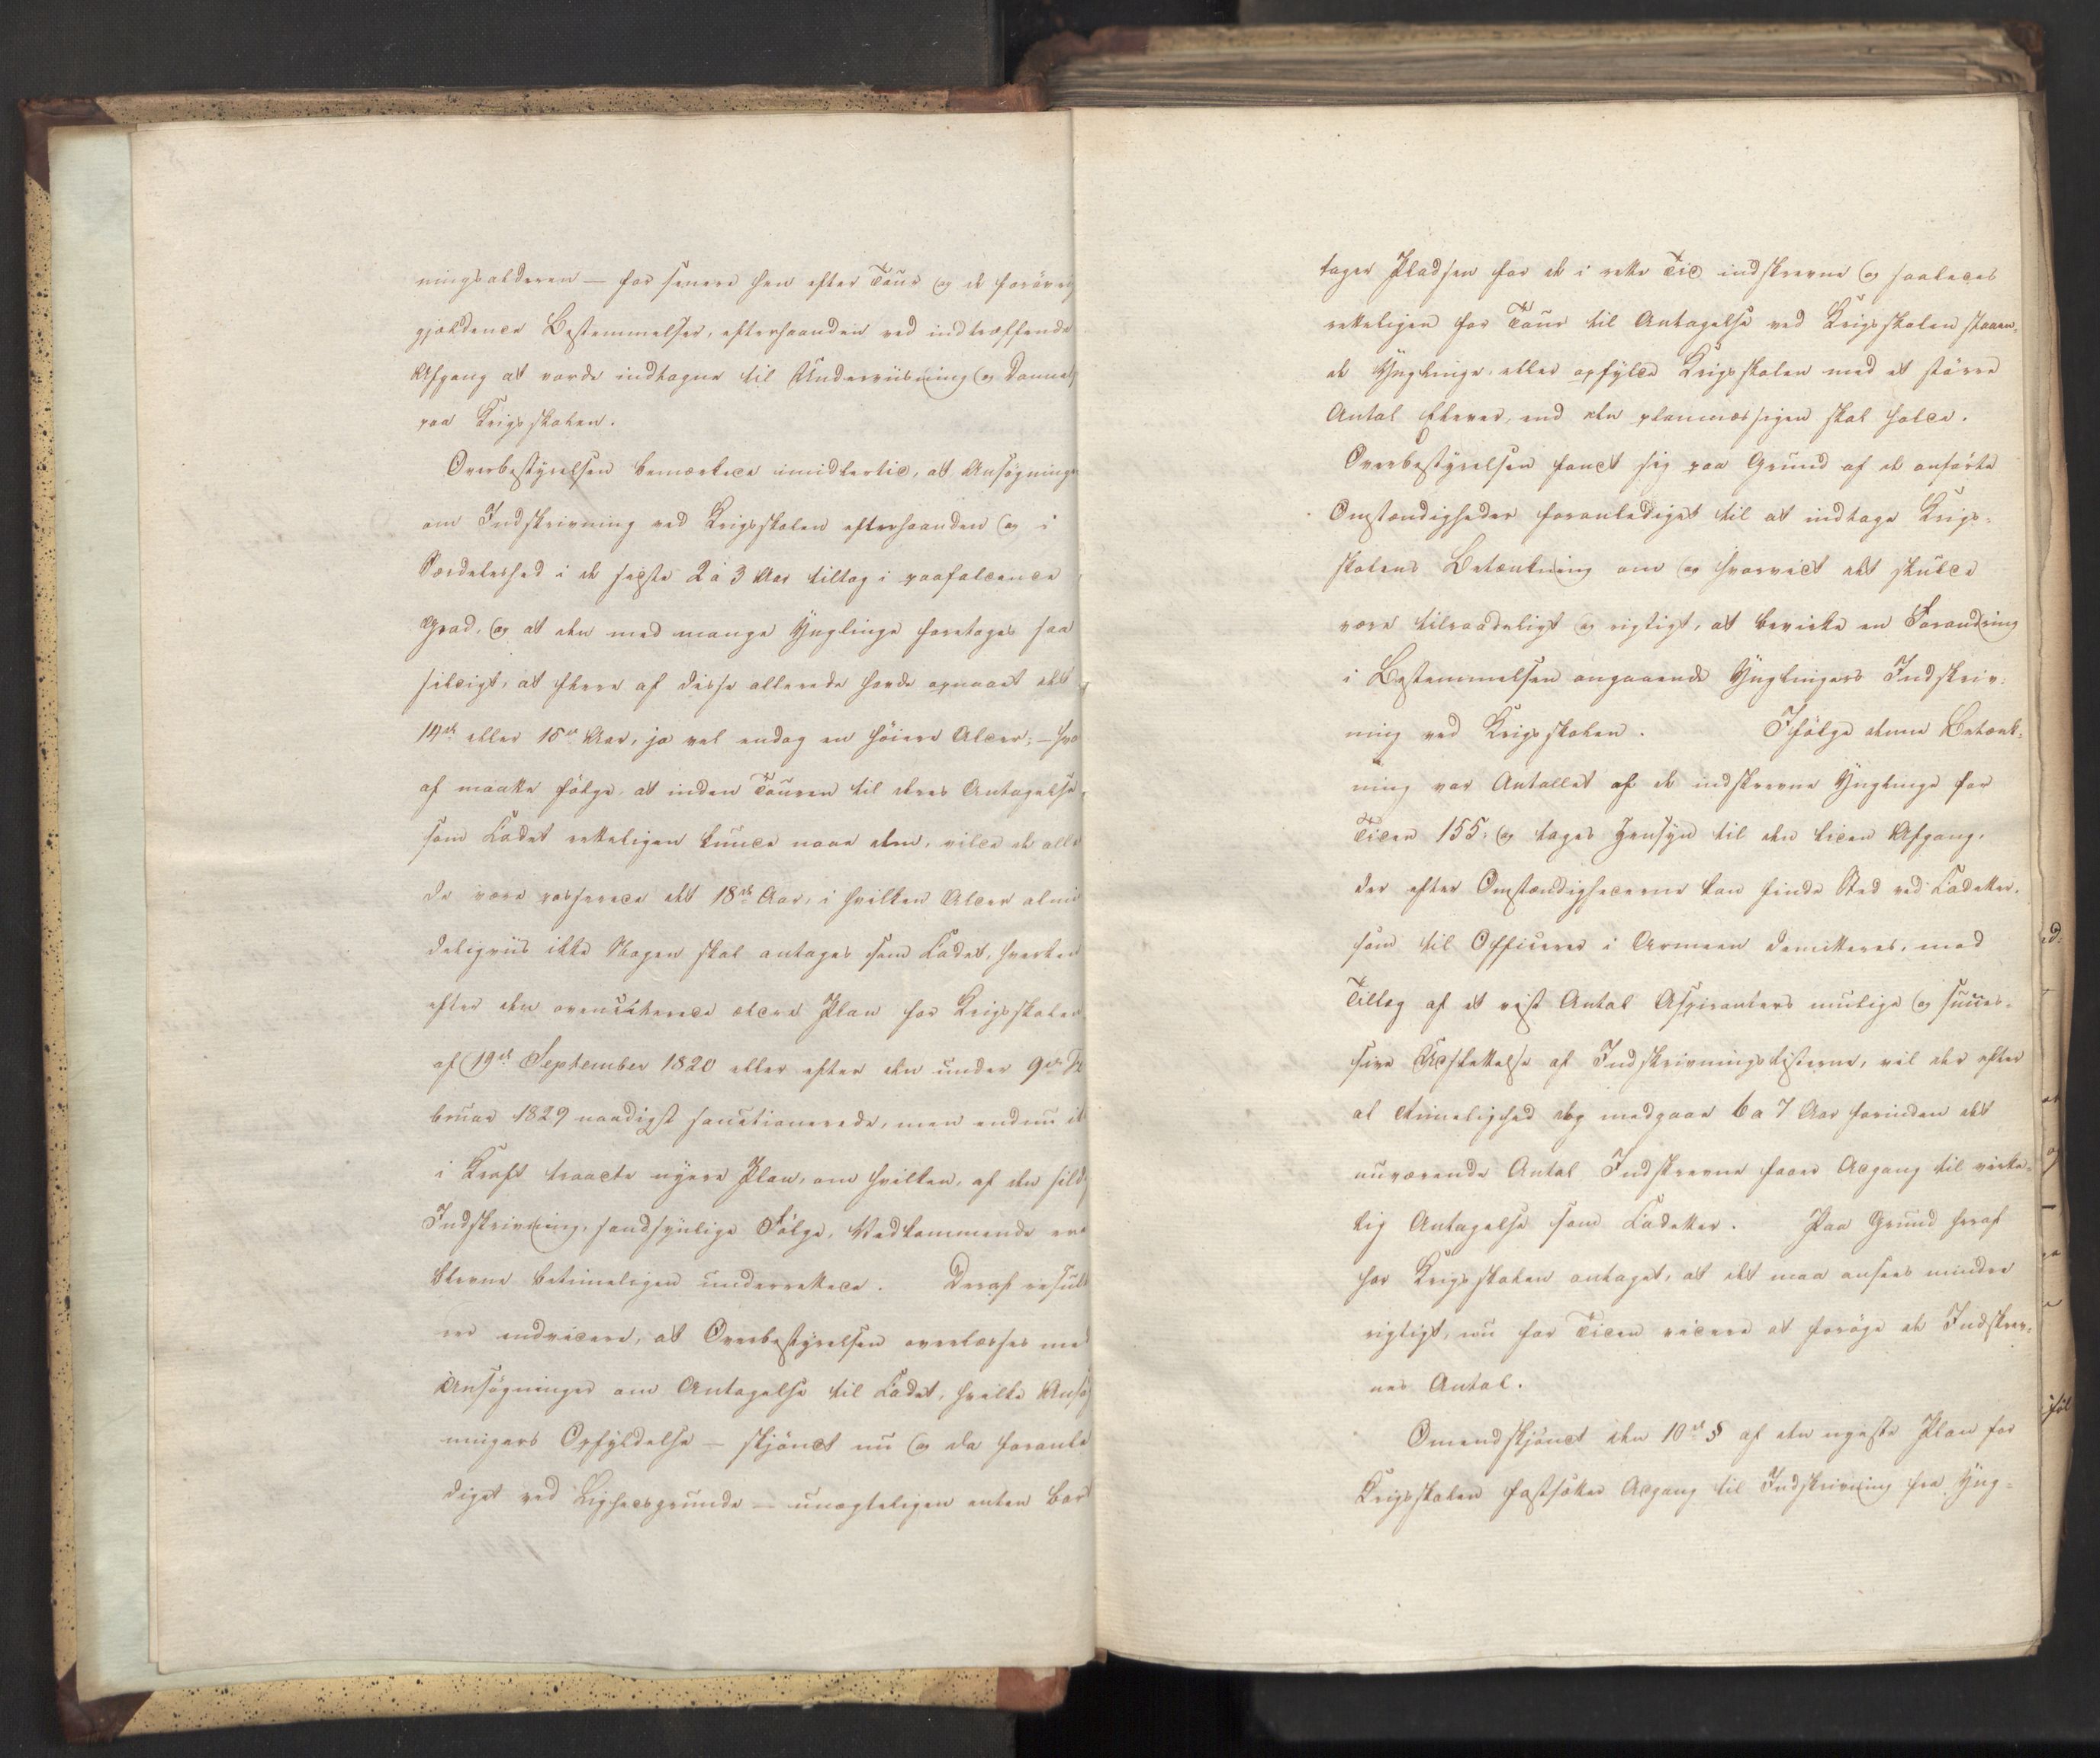 ningsalderen — for senere hen efter Tour og de forøvrig
gjældende Bestemmelser, efterhaanden ved indtræffende
Afgang at vorde indtagne til Underviisning og Dannels
paa Krigsskolen.
Overbestyrelsen bemærkede imidlertid, at Ansøgninge
om Indskrivning ved Krigsskolen efterhaanden og i
Særdeleshed i de sidste 2 à 3 Aar tiltog i paafaldende
Grad, og at den med mange Ynglinge foretages saa
sildigt, at flere af disse allerede havde opnaaet det
14de eller 15de Aar, ja vel endog en høiere Alder; — hvo
af maatte følge, at inden Touren til deres Antagelse
som Cadet retteligen kunde naae dem, vilde de alle
de være passerede det 18de Aar, i hvilken Alder almi
deligviis ikke Nogen skal antages som Cadet, hverken
efter den ovenciterede ældre Plan for Krigsskolen
af 19de September 1820 eller efter den under 9de Fe
bruar 1829 naadigst sanctionerede, men endnu ik
i Kraft traadte nyere Plan, om hvilken, af den sild
Indskrivning, sandsynlige Følge, Vedkommende ere
blevne betimeligen underrettede. Deraf result
rer endvidere, at Overbestyrelsen overlæsses me
Ansøgninger om Antagelse til Cadet, hvilke Ansøg
ningers Opfyldelse — skjøndt nu og da foranle
diget ved Lighedsgrunde — unægteligen enten bor
tager Pladsen for de i rette Tid indskrevne og saaledes
retteligen for Tour til Antagelse ved Krigsskolen staaen-
de Ynglinge, eller opfylde Krigsskolen med et større
Antal Elever, end den planmæssigen skal holde.
Overbestyrelsen fandt sig paa Grund af de anførte
Omstændigheder foranlediget til at indtage Krigs-
skolens Betænkning om og hvorvidt det skulde
være tilraadeligt og rigtigt, at bevirke en Forandring
i Bestemmelsen angaaende Ynglingers Indskriv-
ning ved Krigsskolen. Ifølge denne Betænk-
ning var Antallet af de indskrevne Ynglinge for
Tiden 155, og tages Hensyn til den liden Afgang,
der efter Omstændighederne kan finde Sted ved Cadetter,
som til Officerer i Armeen demitteres, med
Tillæg af et vist Antal Aspiranters mulige og succes-
sive Udslettelse af Indskrivningslisterne, vil der efter
al Rimelighed dog medgaae 6 a 7 Aar forinden det
nuværende Antal Indskrevne faaer Adgang til virke-
lig Antagelse som Cadetter. Paa Grund heraf
har Krigsskolen antaget, at det maa ansees mindre
rigtigt, nu for Tiden videre at forøge de Indskrev-
nes Antal.
Omendskjøndt den 10de § af den nyeste Plan for
Krigsskolen fastsætter Adgang til Indskrivning fra Yng-